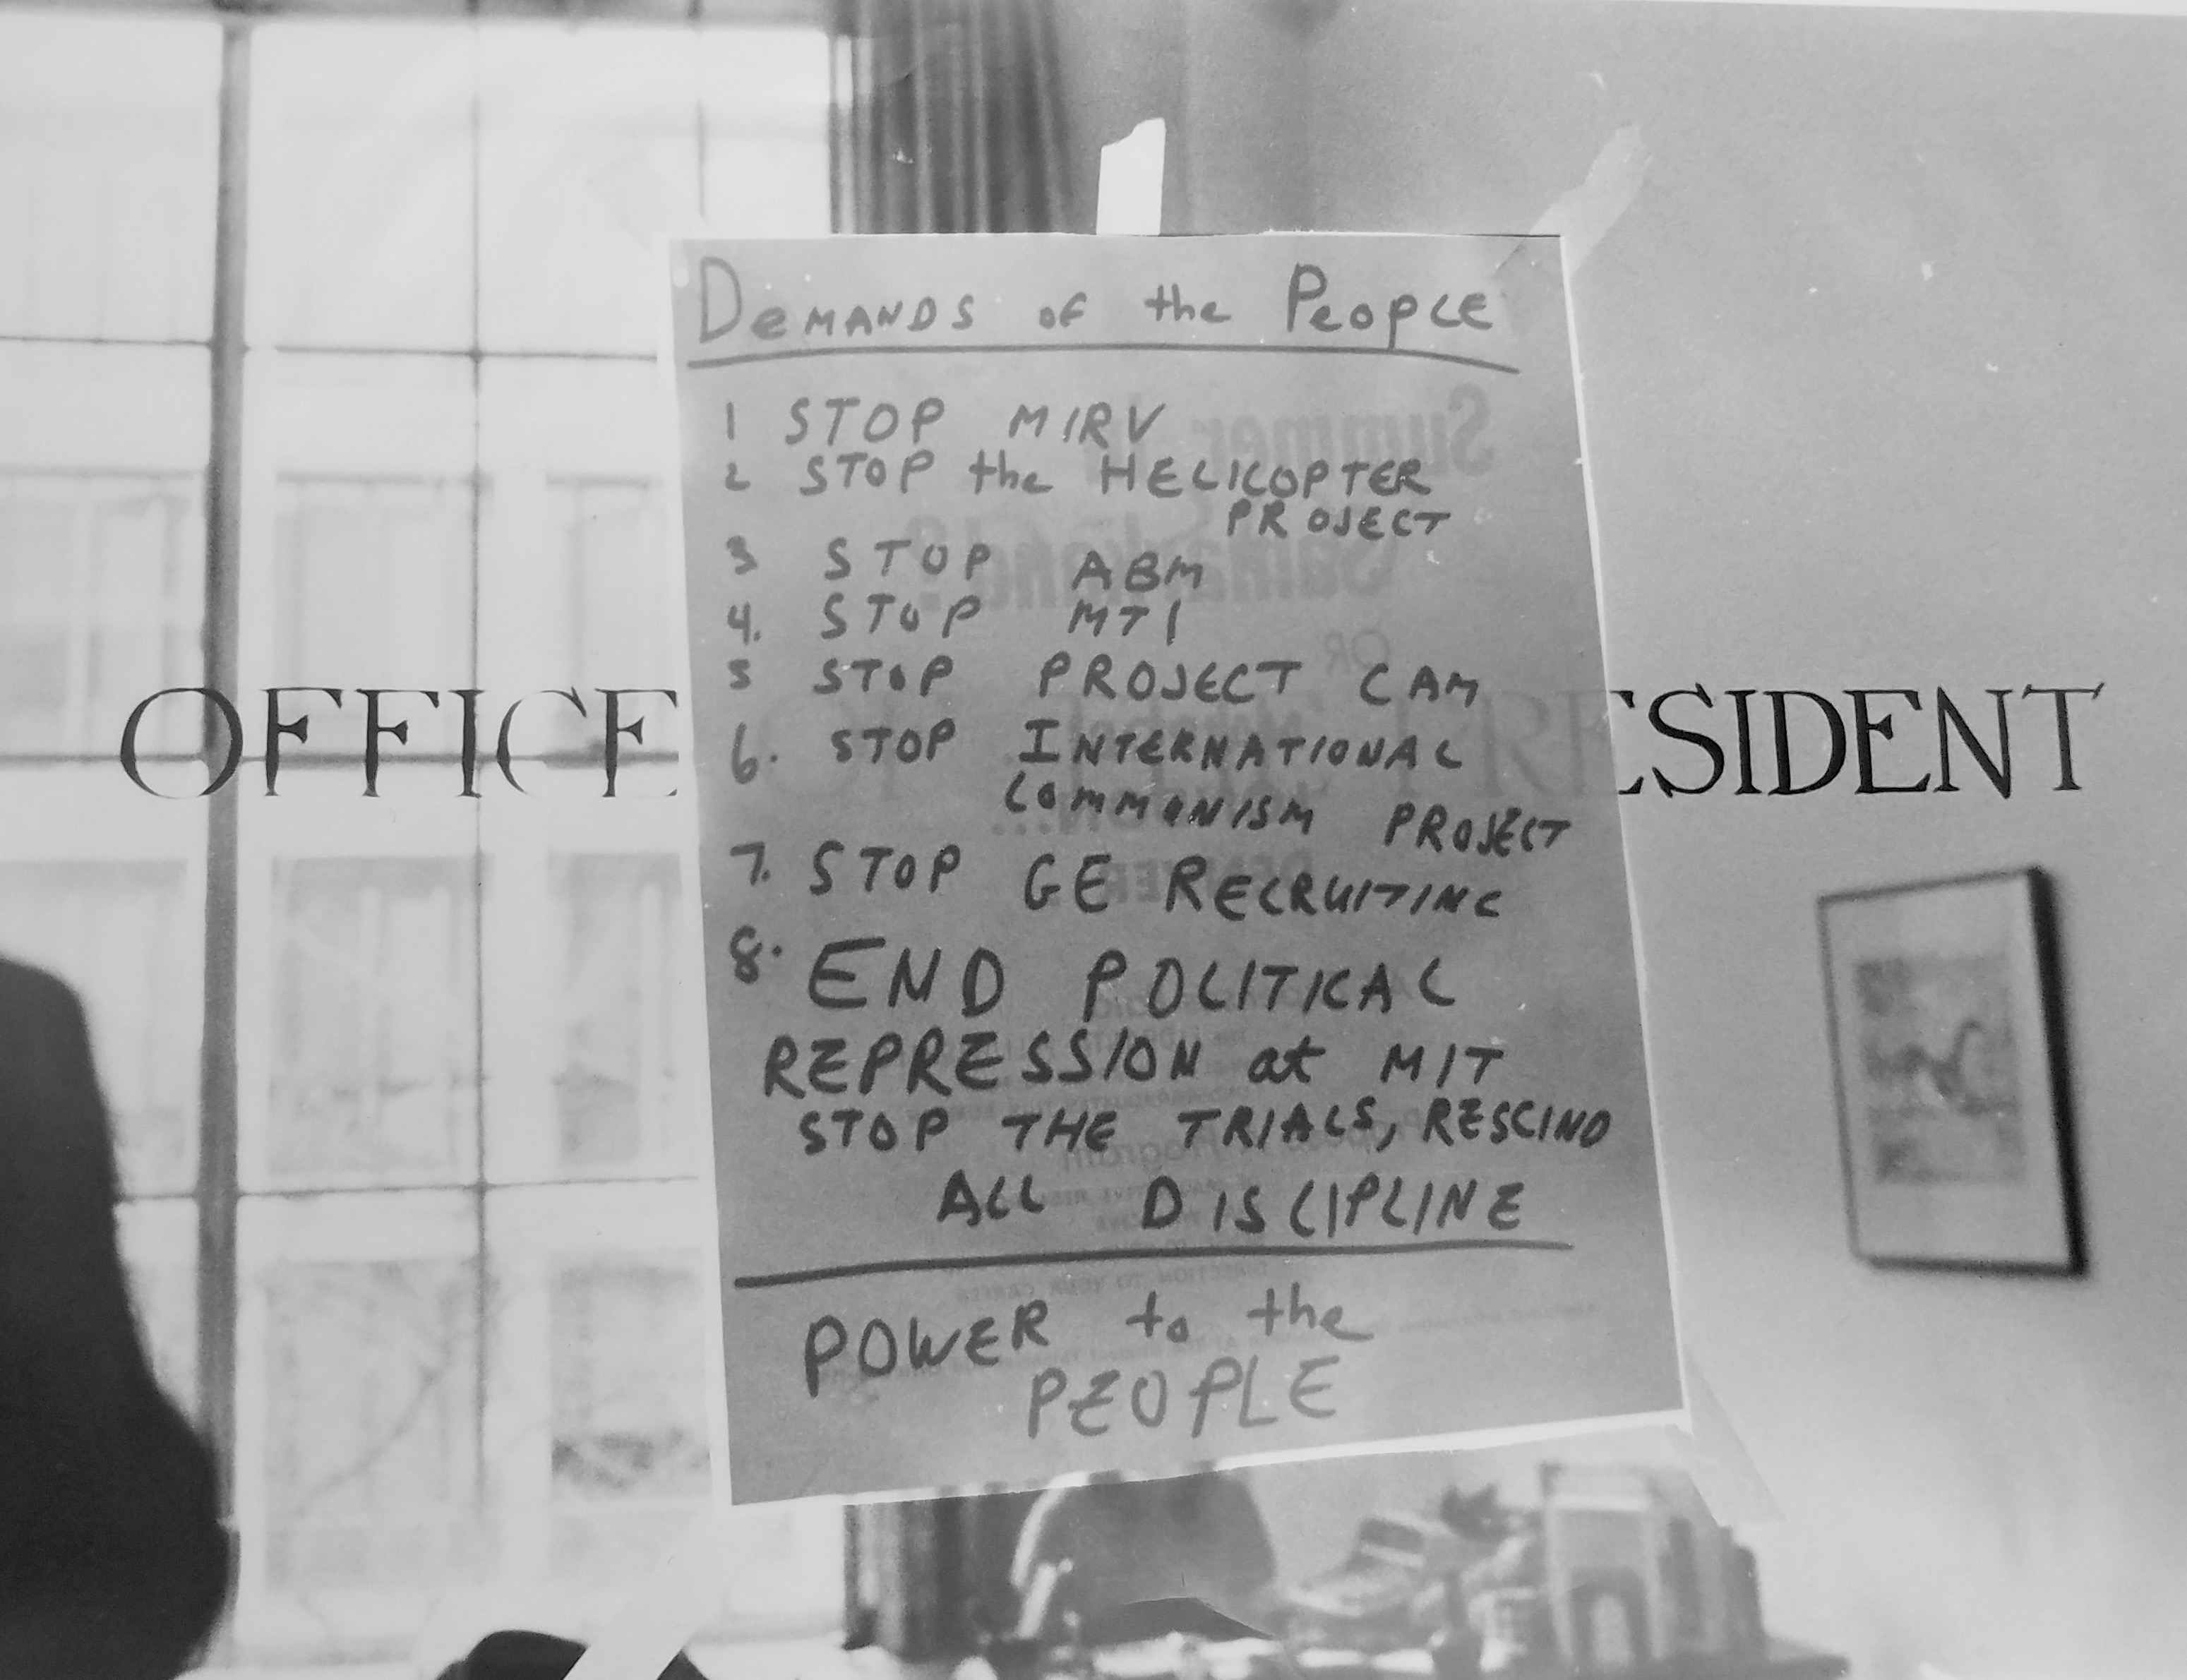 Demands of the People
1 STOP MIRV
2 STOP the HELICOPTER
PROJECT
3 STOP ABM
4. STOP MTI
5 STOP PROJECT CAM
6. STOP INTERNATIONAL
COMMUNISM PROJECT
7. STOP GE RECRUITING
8. END POLITICAL
REPRESSION at MIT
STOP THE TRIALS, RESCIND
ALL DISCIPLINE
POWER to the
PEOPLE
OFFICE PRESIDENT
Summer
OR